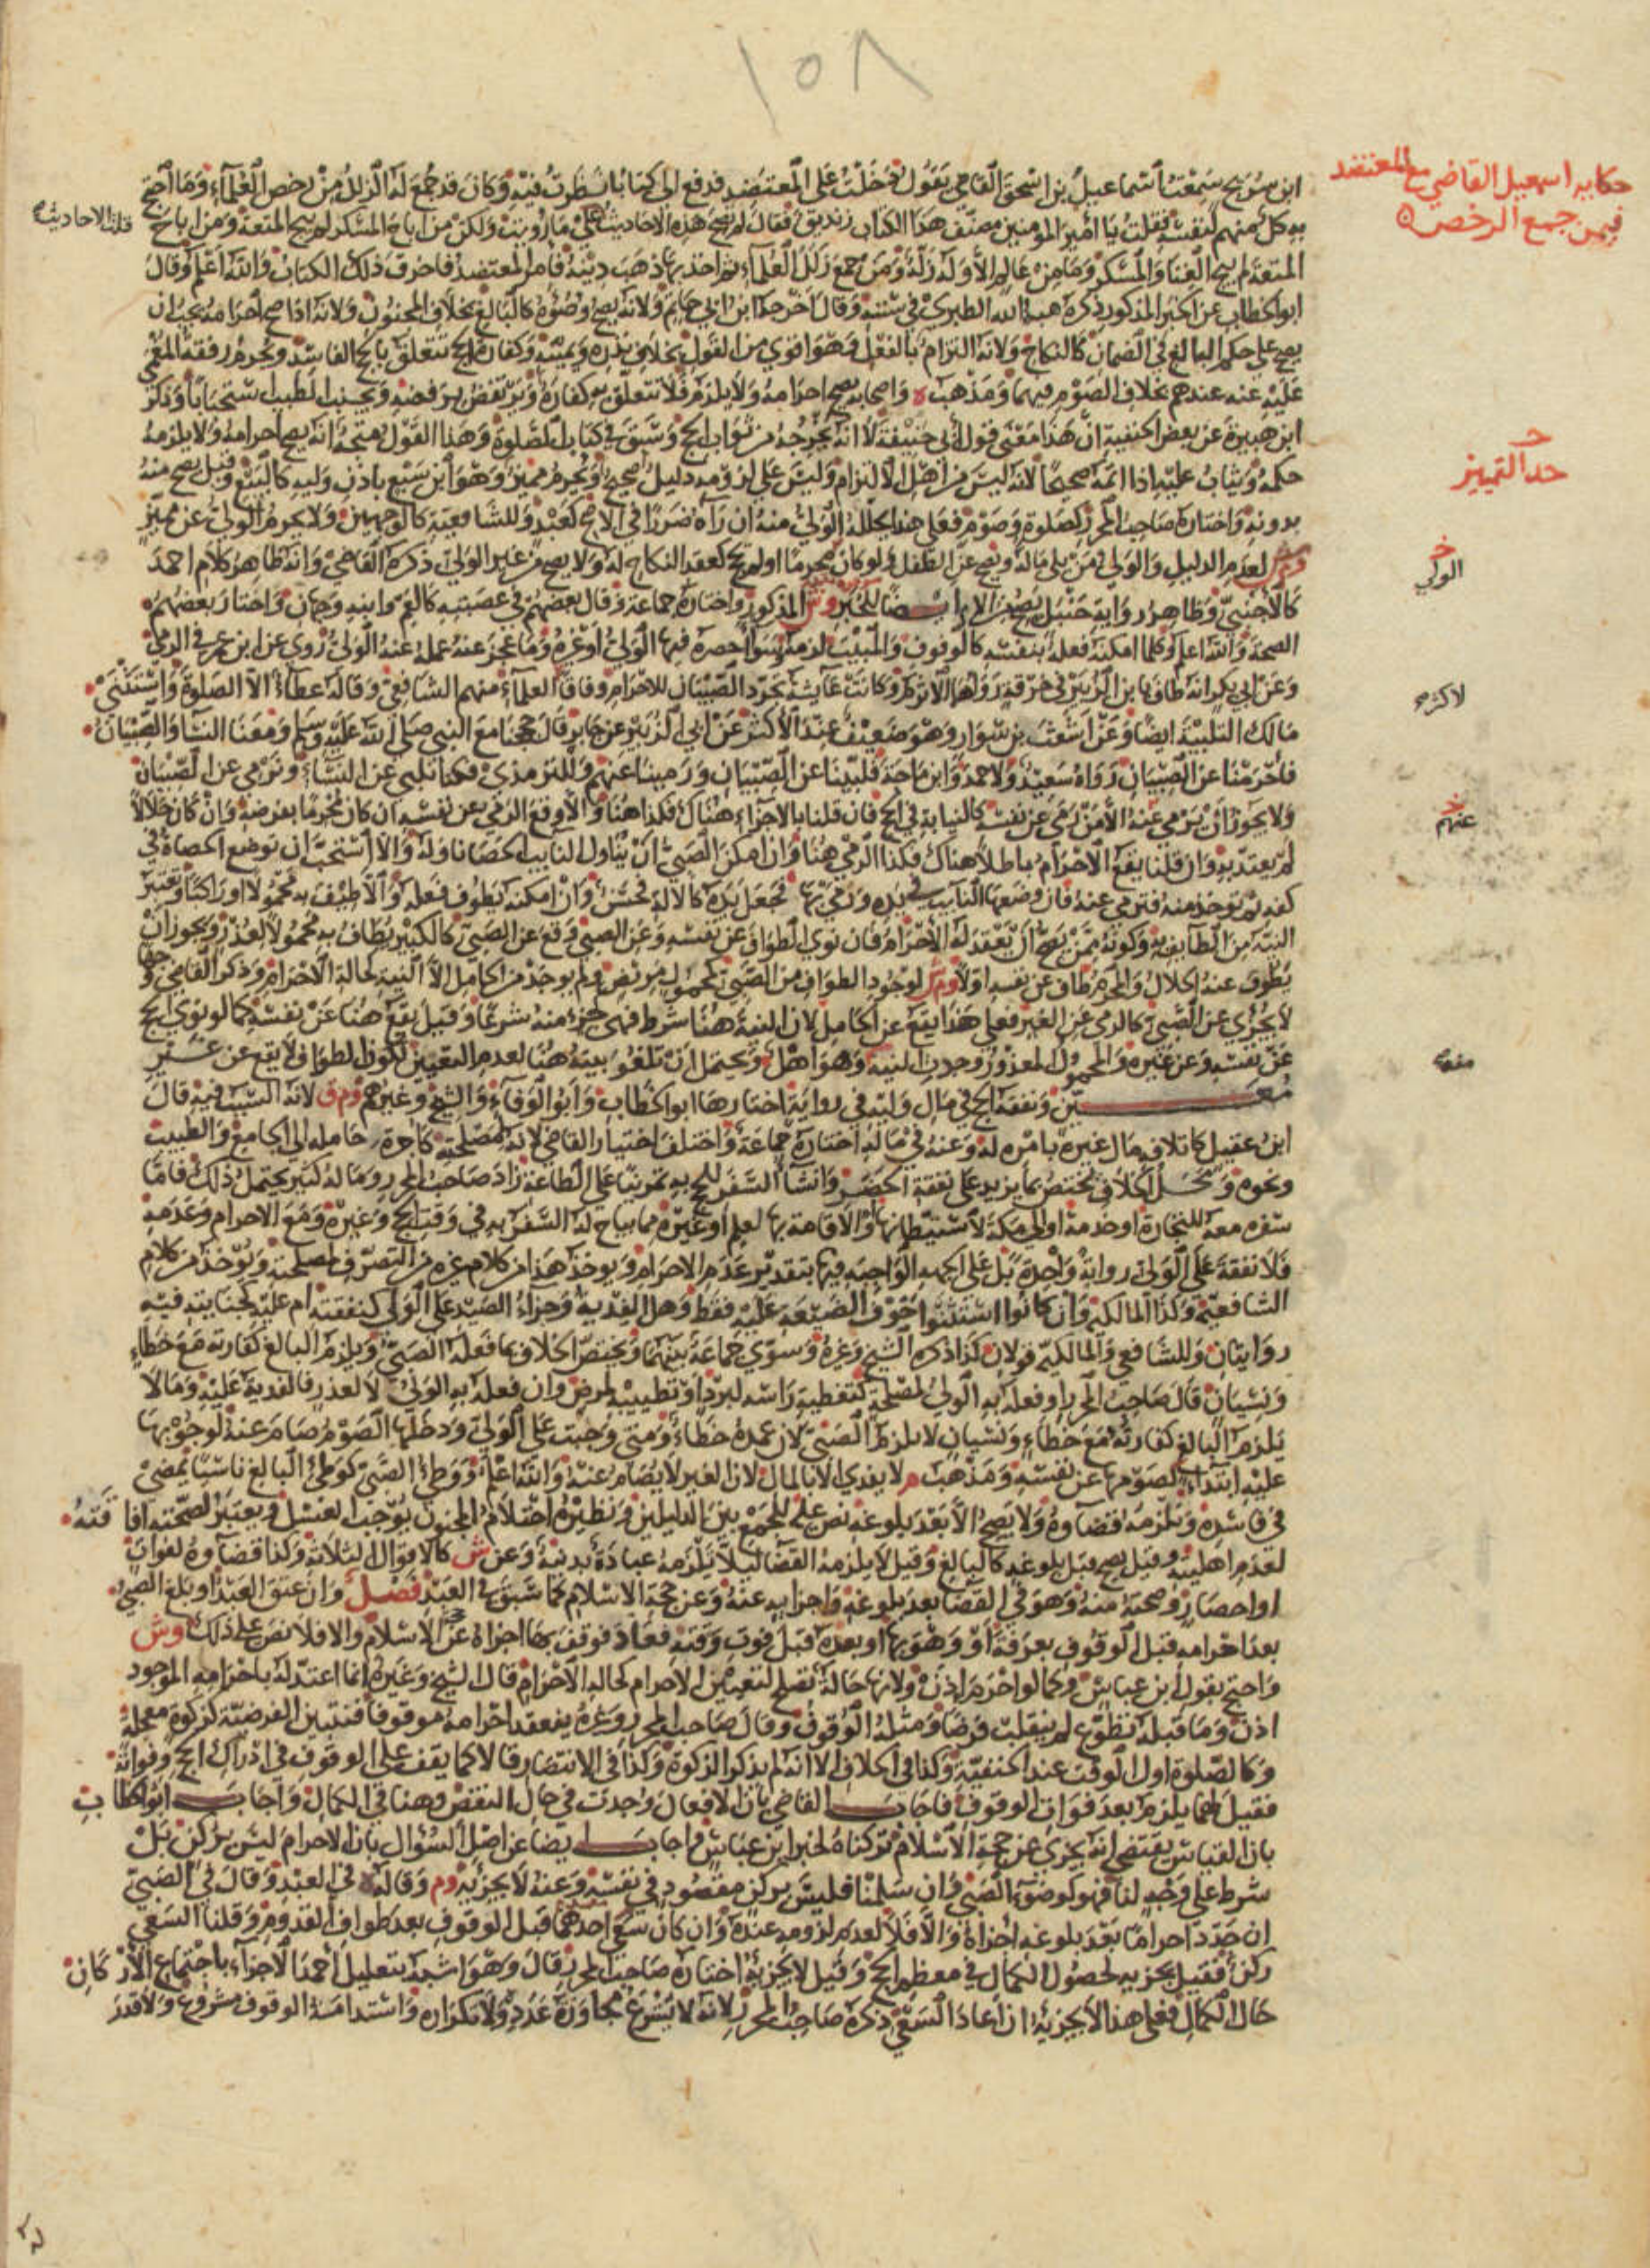 ١٥٨
حكاية اسمعيل القاضي مع المعتضد
فيمن جمع الرخص
ابن سريج سمعت اسماعيل بن اسحق القاضي يقول دخلت على المعتضد فدفع الي كتابا نظرت فيه وكان قد جمع له الزلل من رخص العلماء وما احتج
به كل منهم لنفسه فقلت يا أمير المومنين مصنف هذا الكتاب زنديق فقال لم تصح هذه الاحاديث قلت الاحاديث على ما رويت ولكن من اباح المسكر لم يبح المتعة ومن اباح
المتعة لم يبح الغنا والمسكر وما من عالم الا وله زلة ومن جمع زلل العلماء ثم اخذ بها ذهب دينه فامر المعتضد فاحرق ذلك الكتاب والله اعلم وقال
ابو الخطاب عن الخبر المذكور ذكره هبة الله الطبري في سننه وقال اخرجه ابن ابي حاتم ولانه يصح وضوءه كالبالغ بخلاف المجنون ولانه اذا صح احرامه يجب ان
يصح على حكم البالغ في الضمان كالنكاح ولانه التزام بالفعل وهو اقوى من القول بخلاف نذره ويمينه وكفارة الحج تتعلق بالحج الفاسد ويحرم رفقة المغمى
عليه عنه عندهم بخلاف الصوم فيهما ومذهب ه واصحابه يصح احرامه ولا يلزم فلا تتعلق به كفارة ويرتفض برفضه ويجتنب الطيب استحبابا وذكر
ابن هبيرة عن بعض الحنفية ان هذا معنى قول ابي حنيفة لا انه يخرجه من ثواب الحج وسبق في كتاب الصلوة وهذا القول متجه انه يصح احرامه ولا يلزمه
حكمه ويثاب عليه اذا اتمه صحيحا لانه ليس من أهل الالتزام وليس على لزومه دليل صحيح ويحرم مميز وهو ابن سبع باذن وليه كالبيع وقيل يصح منه
حد التمييز
بدونه واختاره صاحب المحرر كصلوة وصوم فعلى هذا يحلله الولي منه ان رآه ضررا في الاصح كعبد وللشافعية كالوجهين ولا يحرم الولي عن مميز
وم ش لعدم الدليل والولي من يلي ماله ويصح عن الطفل ولو كان محرما او لم يحج كعقد النكاح له ولا يصح من غير الولي ذكره القاضي وانه ظاهر كلام احمد
الولي
كالاجنبي وظاهر رواية حنبل يصح من الام ايضا للخبر وش المذكور واختاره جماعة وقال بعضهم في عصبته كالعم وابنه وجهان واختار بعضهم
الصحة والله اعلم وكلما امكنه فعله بنفسه كالوقوف والمبيت لزمه سوا احضره فيها الولي أو غيره وما عجز عنه عمله عنه الولي روي عن ابن عمر في الرمي
وعن ابي بكر انه طاف بابن الزبير في خرقة رواهما الاثرم وكانت عايشة تجرد الصبيان للاحرام وفاقا العلماء منهم الشافعي وقاله عطاء الا الصلوة واستثنى
لاكثر
مالك التلبية ايضا وعن اشعث بن سوار وهو ضعيف عند الأكثر عن ابي الزبير عن جابر قال حججنا مع النبي صلى الله عليه وسلم ومعنا النسا والصبيان
فاحرمنا عن الصبيان رواه سعيد ولاحمد وابن ماجة فلبينا عن الصبيان ورمينا عنهم وللترمذي فكنا نلبي عن النساء ونرمي عن الصبيان
ولا يجوز أن يرمي عنه الا من رمى عن نفسه كالنيابة في الحج فان قلنا بالاجزاء هناك فكذا هنا والا وقع الرمي عن نفسه ان كان محرما بفرضه وان كان حلالا
عنهم
لم يعتد به وان قلنا يقع الاحرام باطلا هناك فكذا الرمي هنا وان امكن الصبي ان يناول النايب الحصا ناوله والا استحب ان توضع الحصاة في
كفه ثم توخذ منه فترمى عنه فان وضعها النايب في يده ورمى بها فجعل يده كالالة فحسن وان امكنه يطوف فعله والا طيف به محمولا او راكبا وتعتبر
النية من الطايف به وكونه ممن يصح أن يعقد له الاحرام فان نوى الطواف عن نفسه وعن الصبي وقع عن الصبي كالكبير يطاف به محمولا لعذر ويجوز ان
يطوف عنه الحلال والمحرم طاف عن نفسه اولا وم ش لوجود الطواف من الصبي كمحمول مريض ولم يوجد من الحامل الا النية كحالة الاحرام وذكر القاضي وجها
لا يجزي عن الصبي كالرمي عن الغير فعلى هذا يقع عن الحامل لان النية هنا شرط فهي جزء منه شرعا وقيل يقع هنا عن نفسه كما لو نوى الحج
عن نفسه وعن غيره والمحمول المعذور وجدت النية وهو اهل ويحتمل ان تلغو نيته هنا لعدم التعيين لكون الطواف لا يقع عن غير
منه
معين ونفقة الحج في مال وليه في رواية اختارها ابو الخطاب وابو الوفاء والشيخ وغيرهم وم ق لانه السبب فيه قال
ابن عقيل كاتلاف مال غيره بأمره له وعنه في ماله اختاره جماعة واختلف اختيار القاضي لانه لمصلحته كاجرة حامله الى الجامع والطبيب
ونحوه ومحل الخلاف يختص بما يزيد على نفقة الحضر وانشأ السفر للحج به تمرينا على الطاعة زاد صاحب المحرر وماله كثير يحتمل ذلك فاما
سفره معه للتجارة او خدمة او الى مكة لاستيطانها او الاقامة بها لعلم او غيره مما يباح له السفر به في وقت الحج وغيره ومع الاحرام وعدمه
فلا نفقة على الولي رواية واحدة بل على الجهة الواجبة فيها بتقدير عدم الاحرام ويوخذ هذا من كلام غيره من التصرف لمصلحته ويوخذ من كلام
الشافعية وكذا المالكية وان كانوا استثنوا خوف الضيعة عليه فقط وهل الفدية وجزاء الصيد على الولي كنفقته ام عليه كجنايته فيه
روايتان وللشافعي والمالكية قولان كذا ذكره الشيخ وغيره وسوى جماعة بينهما ويختص الخلاف بما فعله الصبي ويلزم البالغ كفارته مع خطاء
ونسيان قال صاحب المحرر او فعله به الولي لمصلحة كتغطية راسه لبرد او تطييبه لمرض وان فعله به الولي لا لعذر فالفدية عليه وما لا
يلزم البالغ كفارته مع خطاء ونسيان لا يلزم الصبي لان عمده خطاء ومتى وجبت على الولي ودخلها الصوم صام عنه لوجوبها
عليه ابتداء كصومها عن نفسه ومذهب م لا يفدي الا بالمال لان الغير لا يصام عنه والله اعلم ووطئ الصبي كوطئ البالغ ناسيا يمضي
في فاسده ويلزمه قضاوه ولا يصح الا بعد بلوغه نص عليه للجمع بين الدليلين ونظيره احتلام المجنون يوجب الغسل ويعتبر لصحته افاقته
لعدم اهليته وقيل يصح قبل بلوغه كالبالغ وقيل لا يلزمه القضا ليلا تلزمه عبادة بدنية وعن ش كالاقوال الثلاثة وكذا قضاوه لفوات
او احصار وصحته منه وهو في القضا بعد بلوغه واجزايه عنه وعن حجة الاسلام كما سبق في العبد فصل وان عتق العبد او بلغ الصبي
بعد احرامه قبل الوقوف بعرفة او وهو بها او بعده قبل فوت وقته فعاد فوقف بها اجزاه عن حجة الاسلام والا فلا نص على ذلك وش
واحتج بقول ابن عباس وكما لو احرم اذن ولانها حالة تصلح لتعيين الاحرام كحالة الاحرام قال الشيخ وغيره انما اعتد له باحرامه الموجود
اذن وما قبله تطوع لم ينقلب فرضا ومثله الوقوف وقال صاحب المحرر وغيره ينعقد احرامه موقوفا فتتبين الفرضية كزكوة معجلة
وكالصلوة اول الوقت عند الحنفية وكذا في الخلاف الا انه لم يذكر الزكوة وكذا في الانتصار قالا كما يقف على الوقوف في ادراك الحج وفواته
فقيل لهما يلزم بعد فوات الوقوف فاجاب القاضي بان الافعال وجدت في حال النقص وهنا في الكمال واجاب ابو الخطاب
بان القياس يقتضي انه يجزي عن حجة الاسلام تركناه لخبر ابن عباس واجاب ايضا عن اصل السؤال بان الاحرام ليس بركن بل
شرط على وجه لنا فهو كوضوء الصبي وان سلمنا فليس بركن مقصود في نفسه وعنه لا يجزئه وم وقاله ه في العبد وقال في الصبي
ان جدد احراما بعد بلوغه اجزاه والا فلا لعدم لزومه عنده وان كان سعى احدهما قبل الوقوف بعد طواف القدوم وقلنا السعي
ركن فقيل يجزيه لحصول الكمال في معظم الحج وقيل لا يجزيه اختاره صاحب المحرر وقال وهو اشبه بتعليل احمد الاجزاء باجتماع الأركان
حال الكمال فعلى هذا لا يجزيه ان أعاد السعي ذكره صاحب المحرر لانه لا يشرع مجاوزة عدده ولا تكراره واستدامة الوقوف مشروع ولا قدر